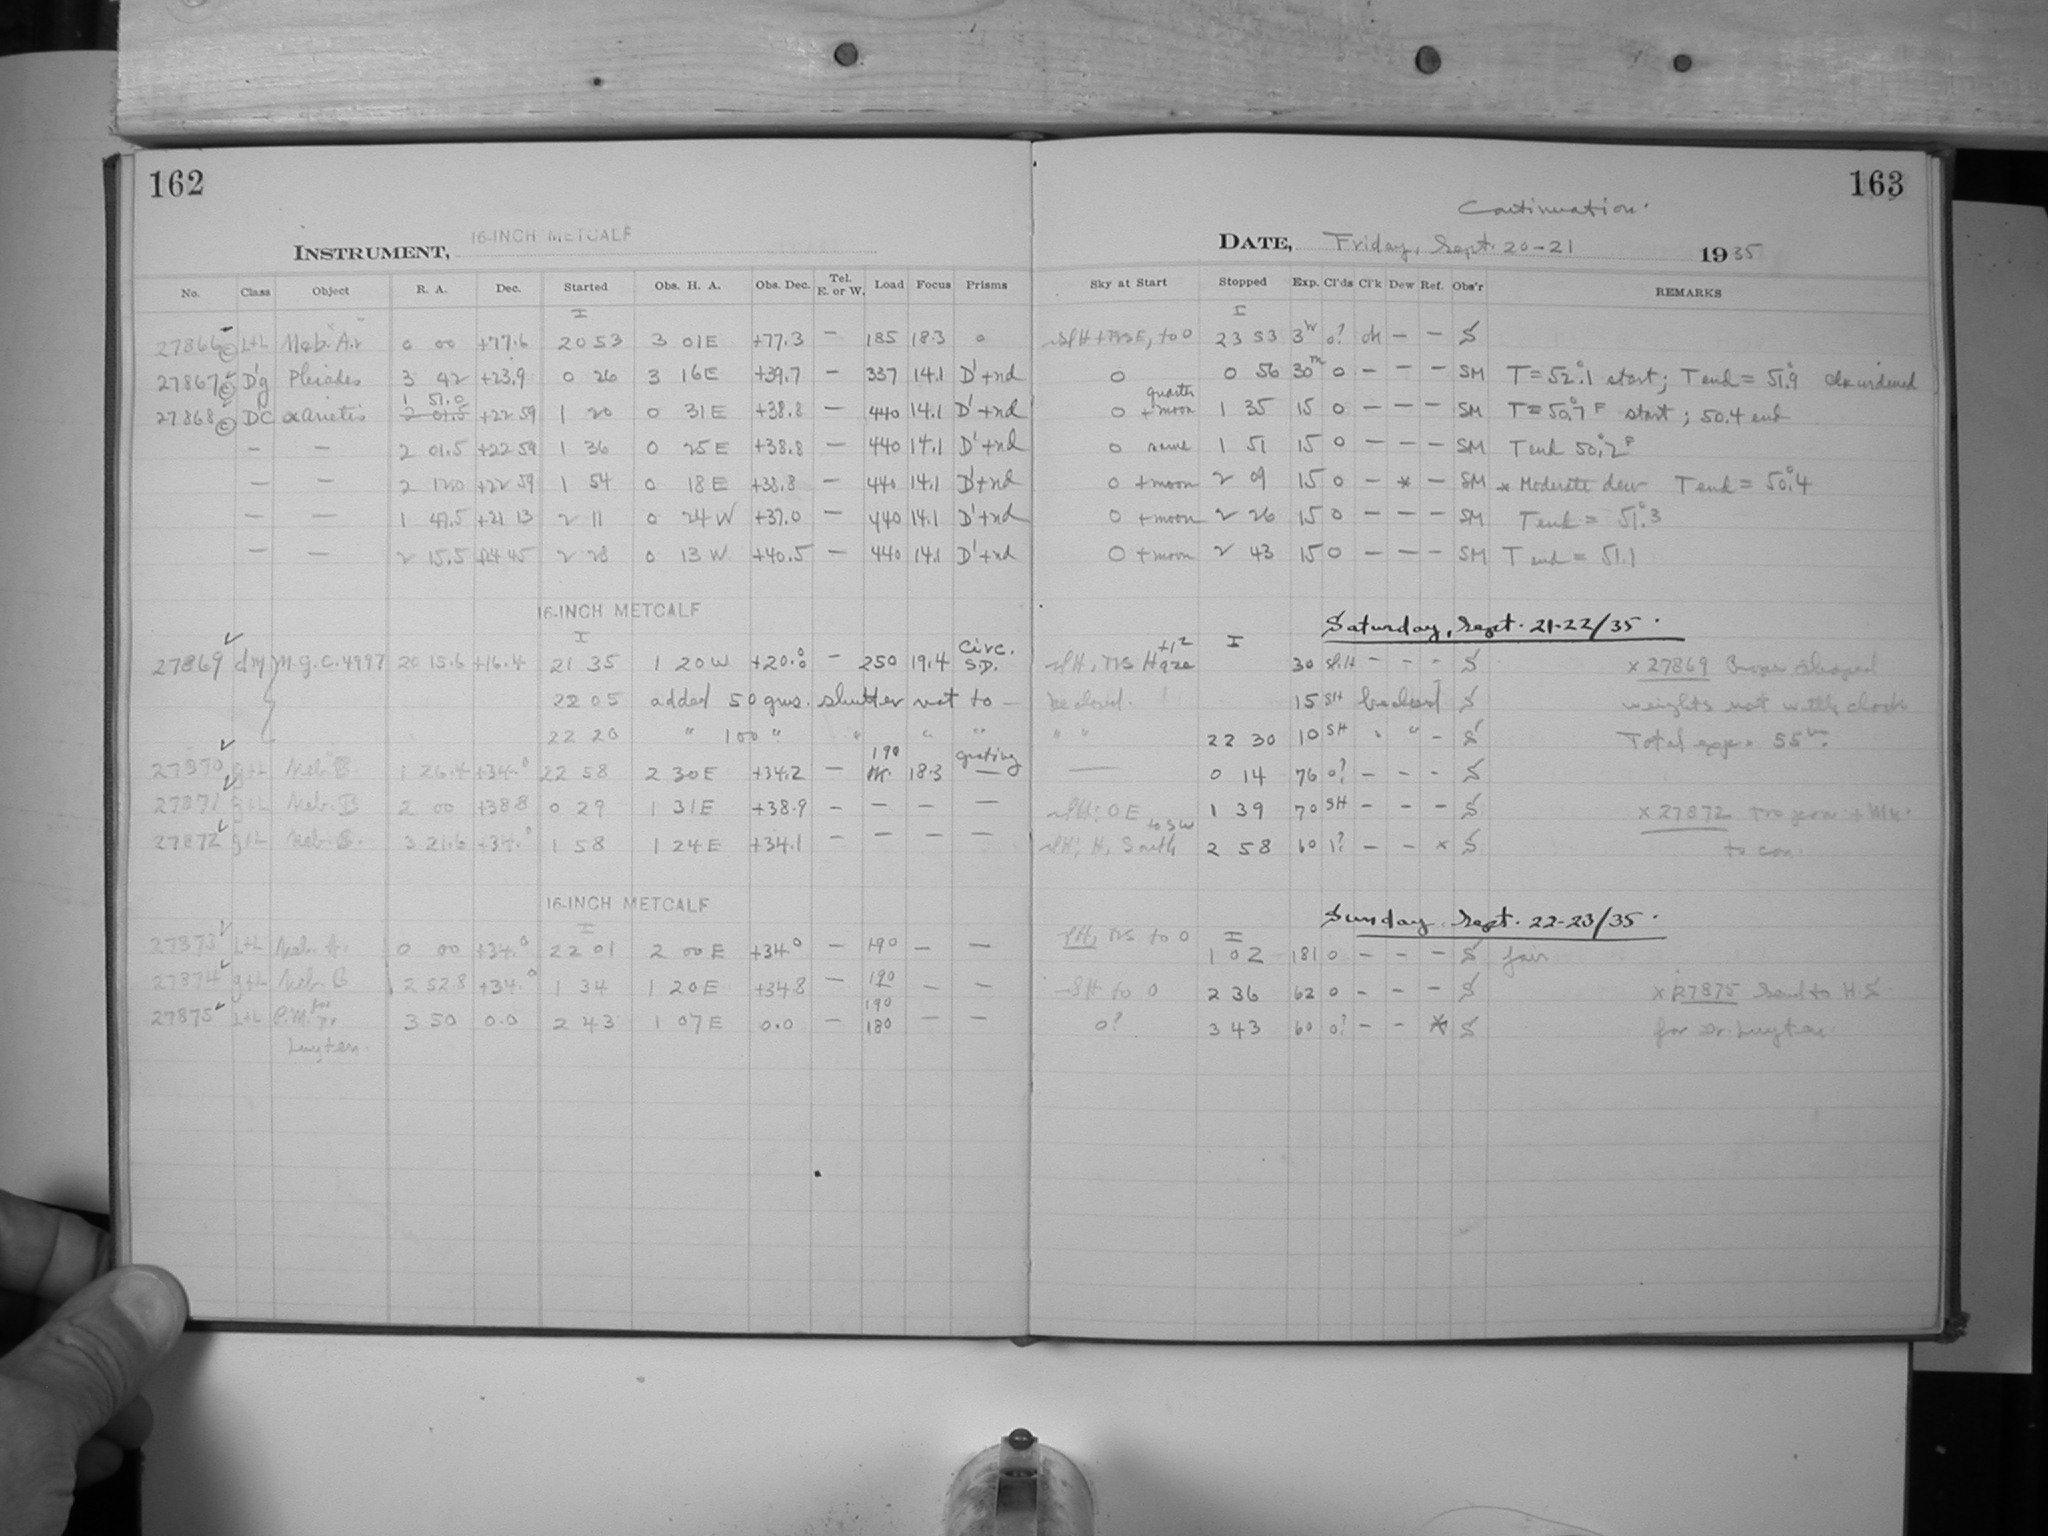 162
163
Continuation.
INSTRUMENT, 16-INCH METCALF
DATE, Friday, Sept. 20-21 1935
No. Class Object R. A. Dec. Started Obs. H. A. Obs. Dec. Tel. E. or W. Load Focus Prisms Sky at Start Stopped Exp. Cl'ds Cl'k Dew Ref. Obs'r REMARKS
27866 L+L Neb. "A" 0 00 +77.6 20 53 3 01E +77.3 - 185 18.3 0 to 0 23 53 3 0? ok - - S
27867 D'g Pleiades 3 42 +23.9 0 26 3 16E +39.7 - 337 14.1 D'+nd 0 0 56 30m 0 - - - SM T=52°.1 start; T end = 51°.9
27868 DC α arietis 1 51.0 2 01.5 +22 59 1 20 0 31E +38.8 - 440 14.1 D'+nd 0 quarter + moon 1 35 15 0 - - - SM T=50°.7 F start; 50.4 end
- - 2 01.5 +22 59 1 36 0 25E +38.8 - 440 14.1 D'+nd 0 same 1 51 15 0 - - - SM T end 50°.2 F
- - 2 12.0 +22 59 1 54 0 18E +38.8 - 440 14.1 D'+nd 0 + moon 2 09 15 0 - * - SM * Moderate dew T end = 50°.4
- - 1 47.5 +21 13 2 11 0 24W +37.0 - 440 14.1 D'+nd 0 + moon 2 26 15 0 - - - SM T end = 51°.3
- - 2 15.5 +24 45 2 28 0 13W +40.5 - 440 14.1 D'+nd 0 + moon 2 43 15 0 - - - SM T end = 51.1
16-INCH METCALF
Saturday, Sept. 21-22/35.
27869 N.G.C. 4997 20 15.6 +16.4 21 35 1 20W - 250 19.4 Circ. S.D. Haze 30 - - - S x 27869
22 05 added 50 gms. shutter not to - be closed. 15 SH be closed S weights not with clock
22 20 " 100 " " " " " " 22 30 10 SH " " - S Total exp. = 55m.
27870 g+L Neb. B. 1 26.4 +34.0 22 58 2 30E +34.2 - 190 18.3 grating - - 0 14 76 0? - - - S
27871 g+L Neb. B 2 00 +38.8 0 29 1 31E +38.9 - - - - 1 39 70 SH - - - S x 27872
27872 g+L Neb. B. 3 21.6 +34.0 1 58 1 24E +34.1 - - - - 2 58 60 1? - - x S
16-INCH METCALF
Sunday Sept. 22-23/35.
27873 L+L Neb. A. 0 00 +34.0 22 01 2 00E +34° - 190 - - to 0 1 02 181 0 - - - S fair
27874 g+L Neb. B 2 52.8 +34.0 1 34 1 20E +34.8 - 190 - - SH to 0 2 36 62 0 - - - S x 27875 Send to H.S.
27875 L+L P.M. for Dr. Luyten. 3 50 0.0 2 43 1 07E 0.0 - 190 180 - - 0? 3 43 60 0? - - * S for Dr. Luyten.